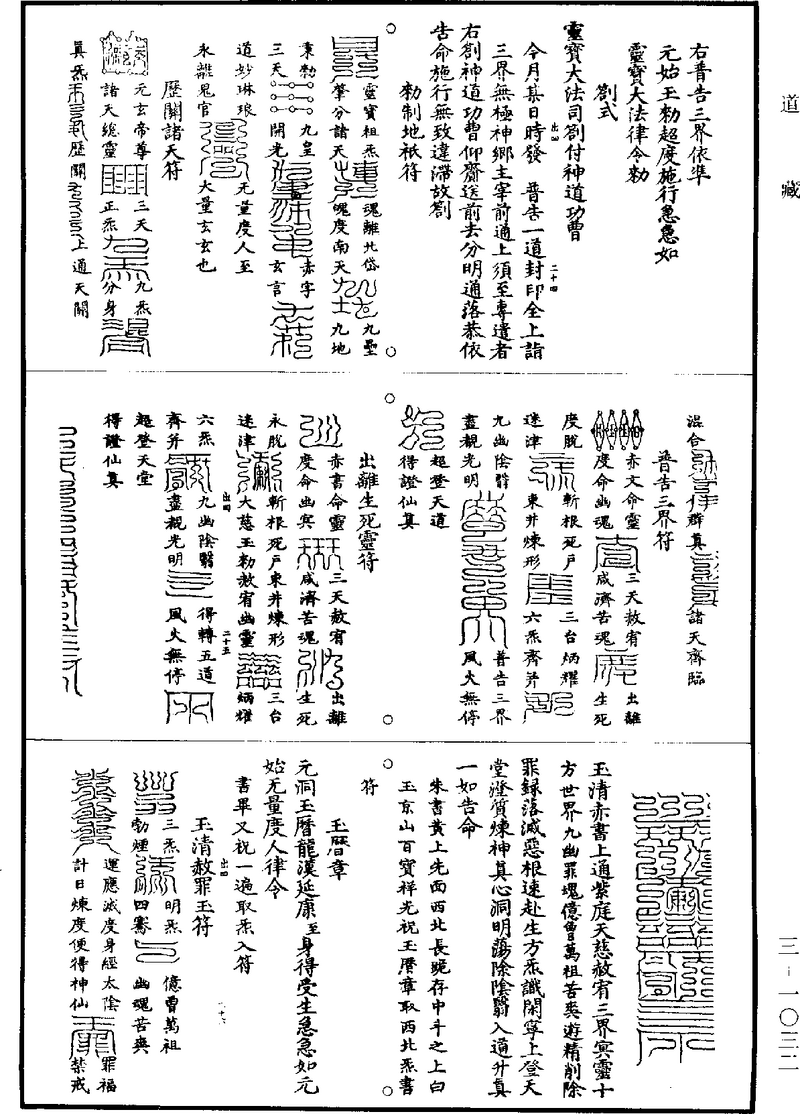 道藏
右普告三界依準
元始王勑超度施行急急如
靈寶大法律令勑
劄式
靈寶大法司劄付神道功曹
今月某日時發　普告一道封印全上詣
三界無極神鄉主宰前通上須至專遣者
右劄神道功曹仰齎送前去分明通落恭依
告命施行無致違滯故劄
勑制地祇符
靈寶祖炁
魂離北岱
九壘
肇分諸天
魄度南天
九地
秉勑
九皇
赤字
三天
開光
玄言
道妙琳琅
无量度人至
永離鬼官
大量玄玄也
歷關諸天符
元玄帝尊
三天
九炁
諸天總靈
正炁
分身
真炁
歷關
上通天關
混合
群真
諸天齊臨
普告三界符
赤文命靈
三天赦宥
出離
度命幽魂
咸濟苦魂
生死
度脫
斬根死戶
三台炳耀
迷津
東井煉形
六炁齊并
九幽陰翳
普告三界
盡覩光明
風火無停
超登天道
得證仙真
出離生死靈符
赤書命靈
三天赦宥
出離
度命幽冥
咸濟苦魂
生死
永脫
斬根死戶東井煉形
三台
迷津
大慈玉勑赦宥幽靈
炳耀
六炁
九幽陰翳
得轉五道
齊并
盡覩光明
風火無停
超登天堂
得證仙真
玉清赤書上通紫庭天慈赦宥三界冥靈十
方世界九幽罪魂億曾萬祖苦爽遊精削除
罪録落滅惡根速赴生方炁識開寧上登天
堂瑩質煉神真心洞明蕩除陰翳入道升真
一如告命
朱書黃上先面西北長跪存中斗之上白
玉京山百寶祥光祝玉曆章取西北炁書
符
玉曆章
元洞玉曆龍漢延康至身得受生急急如元
始无量度人律令
書畢又祝一遍取炁入符
玉清赦罪玉符
三炁
明炁
億曾萬祖
勃煙
四騫
幽魂苦爽
運應滅度身經太陰
罪福
計日煉度便得神仙
禁戒
三－一〇三二